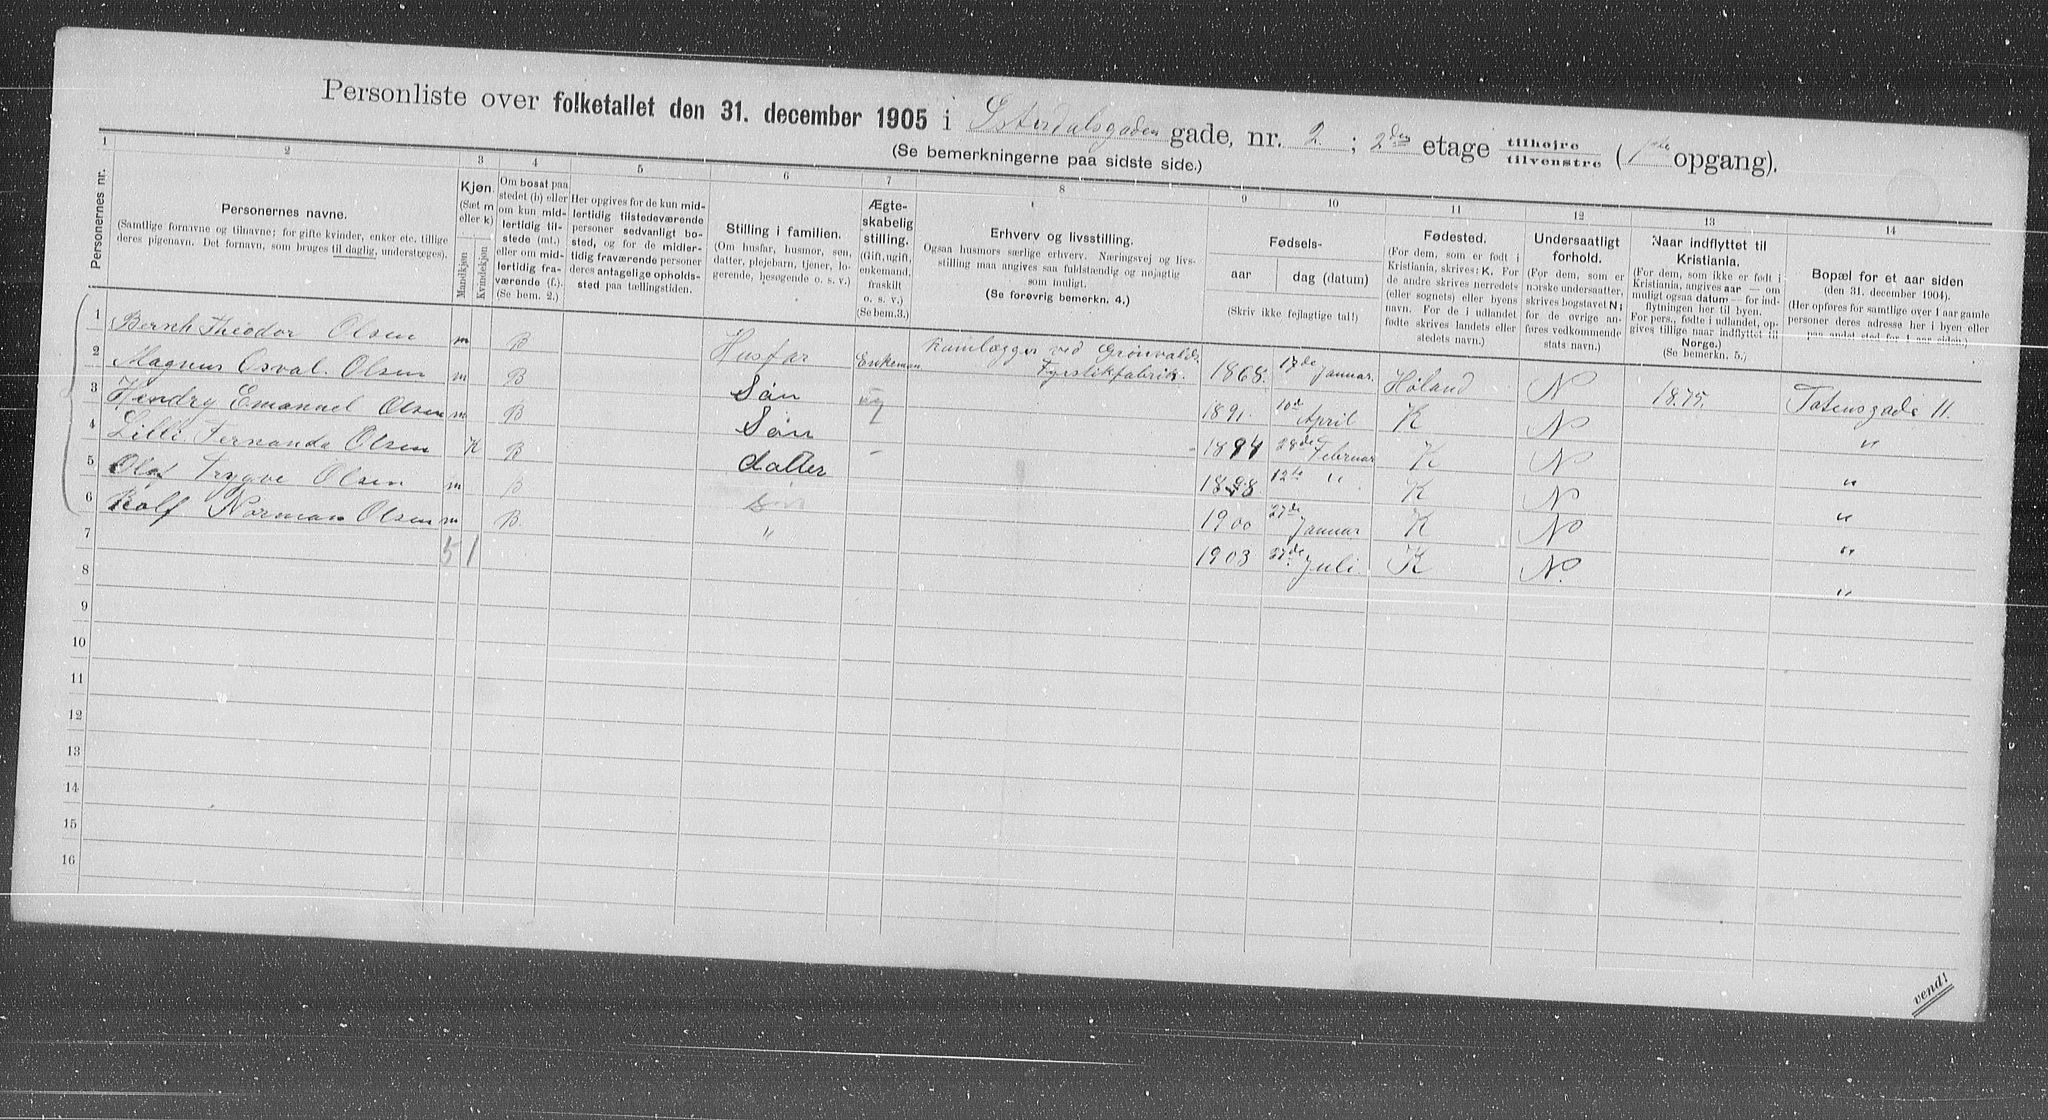 Personliste over folketallet den 31. december 1905 i Østerdalsgaden gade, nr. 2 ; 2den etage tilhøjre tilvenstre ( 1ste opgang).
(Se bemerkningerne paa sidste side.)
1 2 3 4 5 6 7 8 9 10 11 12 13 14
Personernes nr.
Personernes navne.
(Samtlige fornavne og tilnavne; for gifte kvinder, enker etc. tillige
deres pigenavn. Det fornavn, som bruges til daglig, understreges).
Kjøn.
(Sæt m
eller k)
Mandkjøn
Kvindekjøn
Om bosat paa
stedet (b) eller
om kun mid-
lertidig til-
stede (mt.)
eller om mid-
lertidig fra-
værende (f.).
(Se bem. 2.)
Her opgives for de kun mid-
lertidig tilstedeværende
personer sedvanligt bo-
sted, og for de midler-
tidig fraværende personer
deres antagelige opholds-
sted paa tællingstiden.
Stilling i familien.
(Om husfar, husmor, søn,
datter, plejebarn, tjener, lo-
gerende, besøgende o. s. v.)
Ægte-
skabelig
stilling.
(Gift, ugift,
enkemand,
fraskilt
o. s. v.)
(Se bem.3.)
Erhverv og livsstilling.
Ogsaa husmors særlige erhverv. Næringsvej og livs-
stilling maa angives saa fuldstændig og nøjagtig
som muligt.
(Se forøvrig bemerkn. 4.)
Fødsels-
aar
dag (datum)
(Skriv ikke fejlagtige tal!)
Fødested.
(For dem, som er født i
Kristiania, skrives: K. For
de andre skrives herredets
(eller sognets) eller byens
navn. For de i udlandet
fødte skrives landets eller
stedets navn.)
Undersaatligt
forhold.
(For dem, som er
norske undersaatter,
skrives bogstavet N;
for de øvrige an-
føres vedkommende
stats navn.)
Naar indflyttet til
Kristiania.
(For dem, som ikke er født i
Kristiania, angives aar — om
muligt ogsaa datum — for ind-
flytningen her til byen.
For pers., fødte i udlandet, op-
gives tillige naar indflyttet til
Norge.)
(Se bemerkn. 5.)
Bopæl for et aar siden
(den 31. december 1904).
(Her opføres for samtlige over 1 aar gamle
personer deres adresse her i byen eller
paa andet sted for 1 aar siden.)
1 Bernh Theodor Olsen m B Husfar Enkeman Ramlægger ved Grønvolds Fyrstikfabrik. 1868. 17de Januar. Høland N 1875. Totensgade 11.
2 Magnus Osval. Olsen m B Søn ug 1891. 10de April K N "
3 Hendry Emanuel Olsen m B Søn - 1894 28de Februar K N "
4 Lilli Fernanda Olsen K B datter 1898. 12te " K N "
5 Olaf Trygve Olsen m B Søn 1900 27de Januar K N "
6 Rolf Norman Olsen m B. " 1903 27de Juli K N. "
7 5 1
8
9
10
11
12
13
14
15
16
vend!